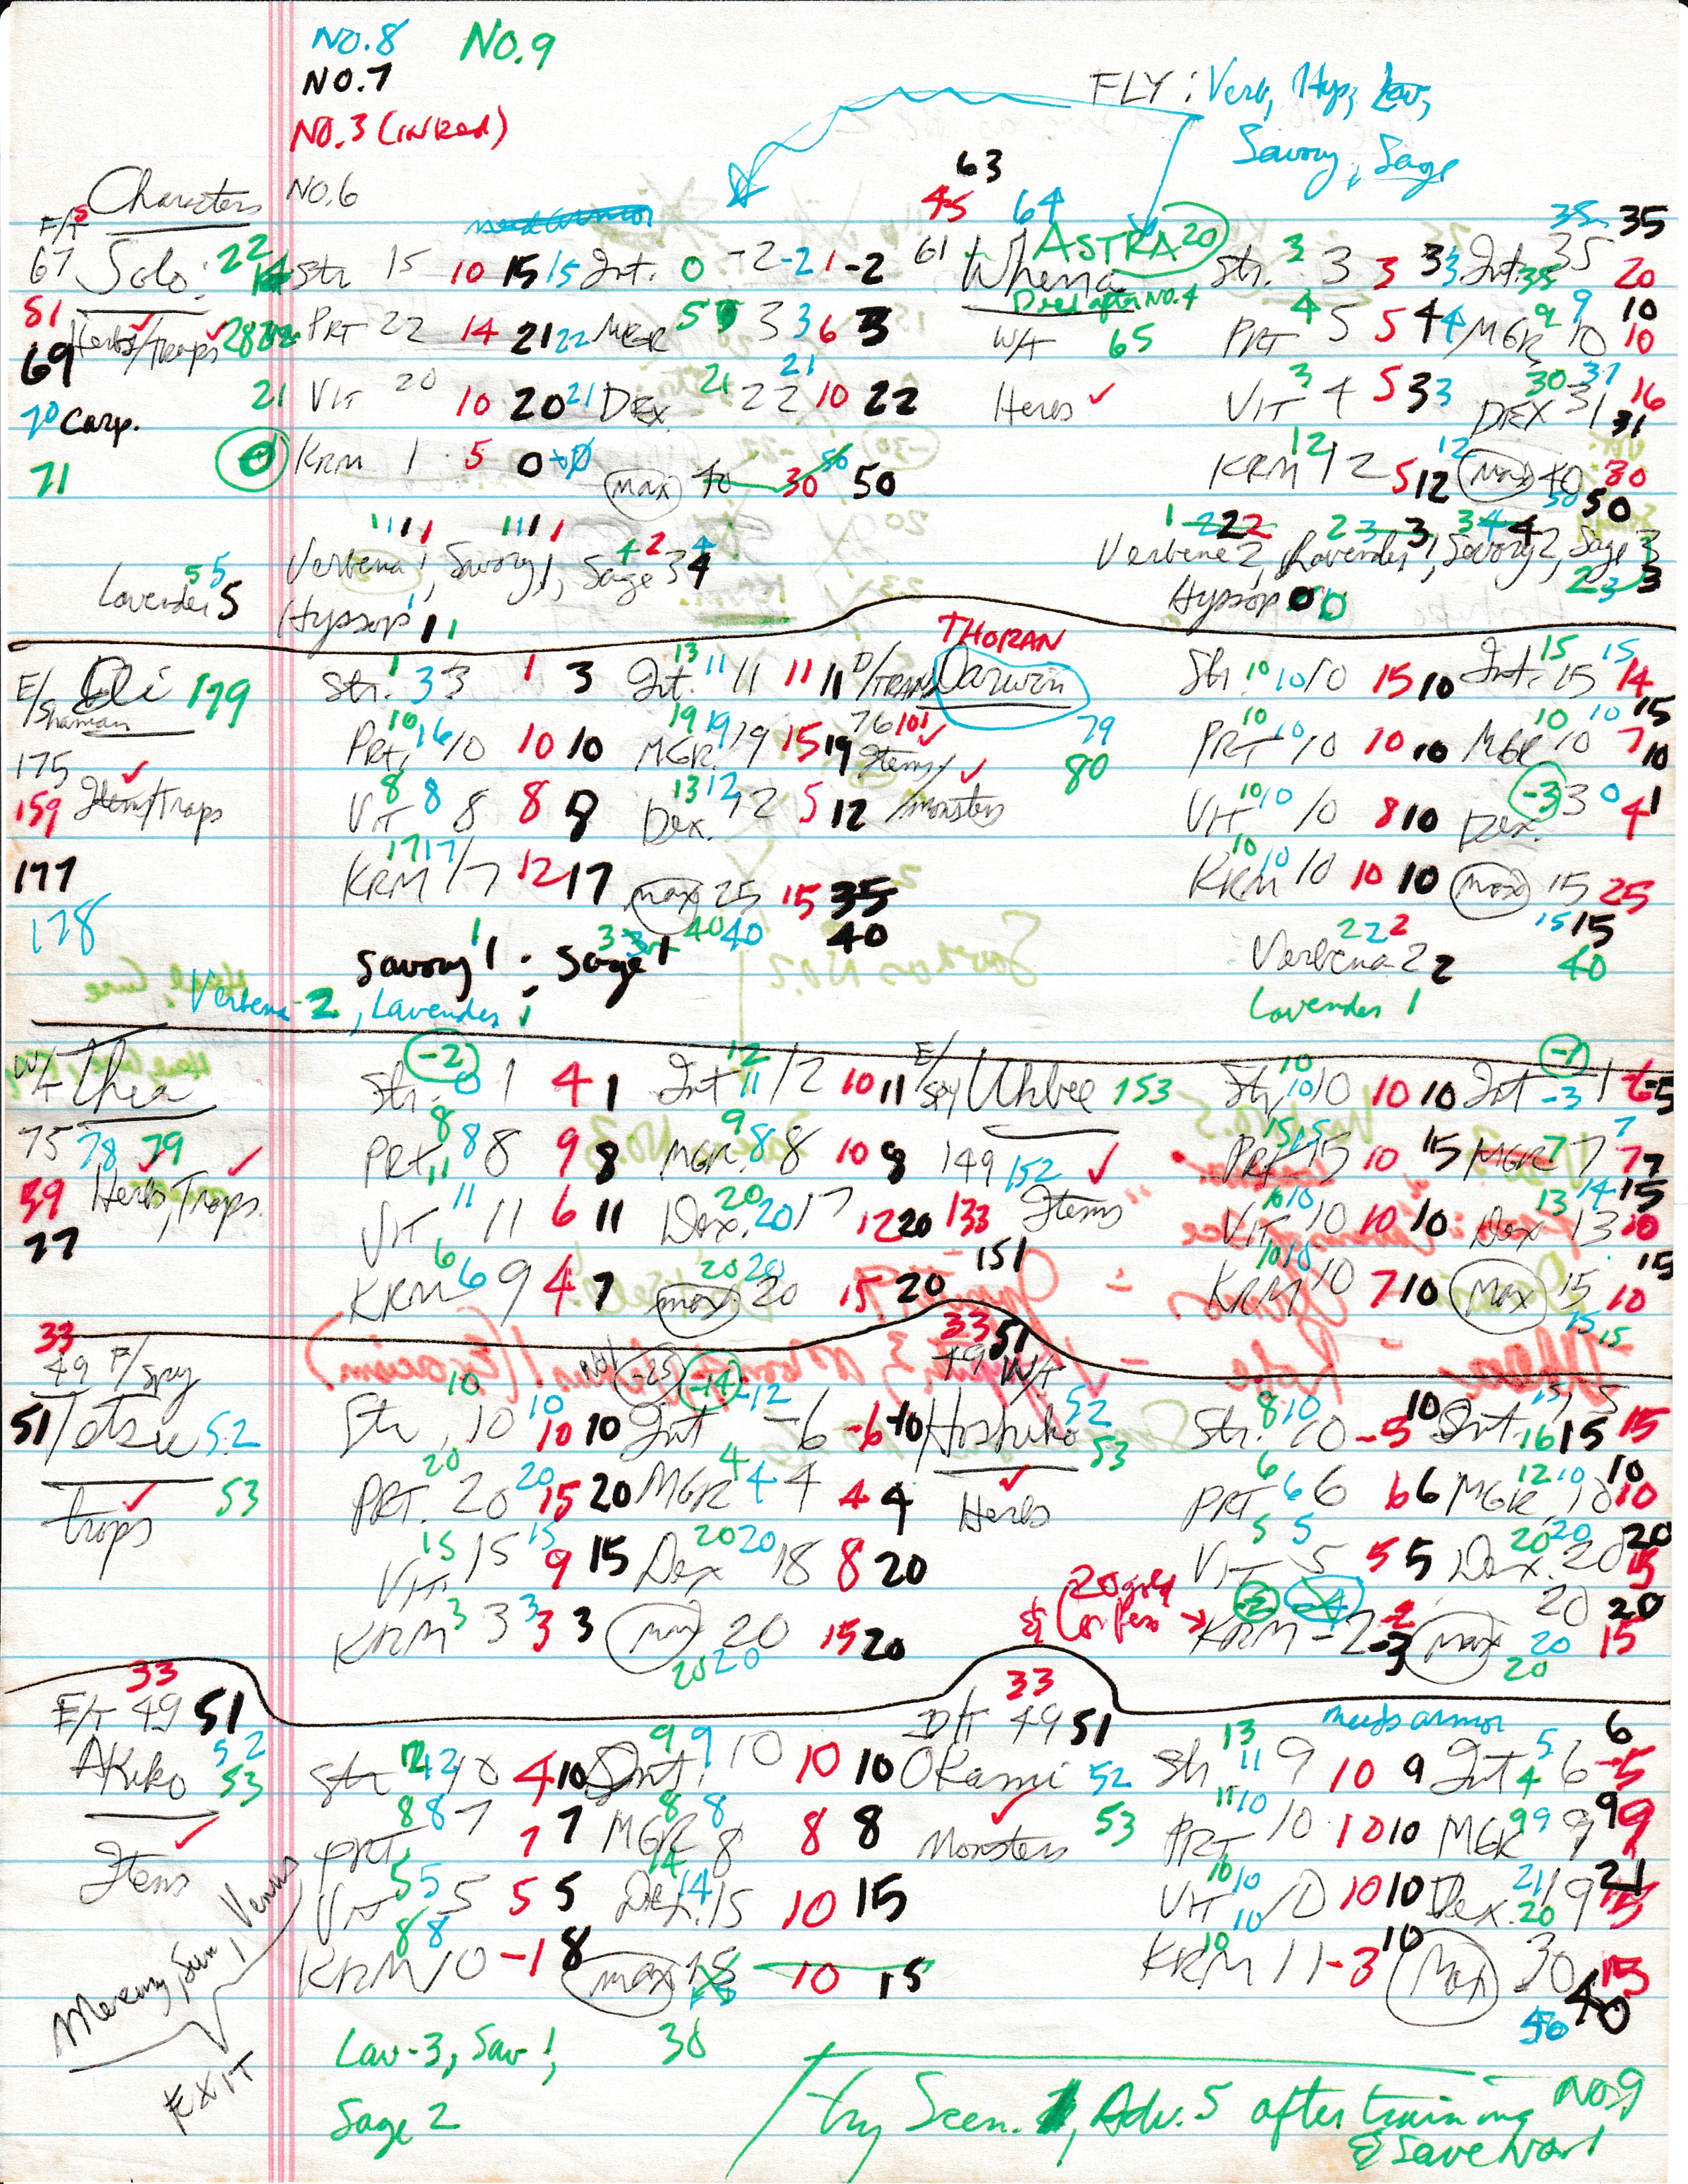 NO.8 NO.9
NO.7
NO.3 (IN Red)
FLY: Verb, Hyp, Lav,
Savory, Sage
63
Characters NO.6 45 64
ASTRA 20 35 35
67 Solo: 22 Str 15 10 15 15 Int. 0 -2 -2 1 -2 61 Whena Str. 3 3 3 3 3 Int. 35 35 20
Died after NO.4
51 Herbs/Traps 28 PRT 22 14 21 22 MGR 5 3 3 6 3 W/T 65 PRT 4 5 5 4 4 MGR 9 10 9 10 10
69
21 VIT 20 10 20 21 DEX 21 22 21 10 22 Herbs VIT 3 4 5 3 3 DEX 30 31 31 16 31
70 Carp.
71 0 KRM 1 5 0 max 40 30 50 50 KRM 12 12 5 12 12 max 40 50 30 50
1 1 1 1 1 1 1 1 4 2 4 1 2 2 2 2 3 3 3 4 4 4
Verbena 1, Savory 1, Sage 3 4 Verbene 2, Lavender 1, Savory 2, Sage 3
5 5
Lavender 5 Hyssop 1 1 1 Hyssop 0 0 2 3 3
THORAN
E/Shaman Eli 179 Str. 1 3 3 1 3 Int. 13 11 11 11 11 D/TRAN Darwin Str. 10 10 10 15 10 Int. 15 15 15 14 15
175 PRT 10 16 10 10 10 MGR 19 19 19 15 19 76 101 79 PRT 10 10 10 10 10 MGR 10 10 10 7 10
159 Items/Traps VIT 8 8 8 8 8 Dex. 13 12 12 5 12 Items/monsters 80 VIT 10 10 10 8 10 Dex. -3 3 0 4 1
177 KRM 17 17 17 12 17 max 25 15 35 KRM 10 10 10 10 10 max 15 25
178 40 40 40 2 2 2 15 15
Savory 1 ; Sage 1 Verbena 2 2 40
Verbena-2, Lavender 1 Lavender 1
W/T Thea Str. -2 0 1 4 1 Int 12 11 12 10 11 E/Spy Uhbee 153 Str 10 10 10 10 10 Int -1 -3 1 -6 -5
75 78 79 PRT 8 8 8 9 8 MGR 9 8 8 10 8 149 152 PRT 15 15 15 10 15 MGR 7 7 7 7 7
59 Herbs, Traps VIT 11 11 11 6 11 Dex. 20 20 17 12 20 133 Items VIT 10 10 10 10 10 Dex 13 14 13 10 15
77 151
KRM 6 6 9 4 7 max 20 20 20 15 20 KRM 10 10 10 7 10 max 15 15 10 15 15
33 33 51
49 F/Spy Not -25 -14 -12 49 W/T
51 Tetsu 52 Str. 10 10 10 10 10 Int -6 -6 -10 Hoshiko 52 Str. 8 10 10 -5 10 Int. 15 15 16 15 15
53 PRT. 20 20 20 15 20 MGR 4 4 4 4 4 53 PRT 6 6 6 6 6 MGR 12 10 10 10 10
Traps VIT. 15 15 15 9 15 Dex 20 20 18 8 20 Herbs VIT 5 5 5 5 5 Dex. 20 20 20 20 15
20 gold
& Confess
KRM 3 3 3 3 3 max 20 15 20 KRM -2 -4 -2 -2 -3 max 20 20 15
20 20 20 20
33 33
E/T 49 51 D/T 49 51 needs armor 6
Akiko 52 53 Str 12 12 10 4 10 Int. 9 9 10 10 10 Okami 52 Str 13 11 9 10 9 Int 5 4 6 -5
PRT 8 8 7 7 7 MGR 8 8 8 8 8 Monsters 53 PRT 11 10 10 10 10 MGR 9 9 9 9 9
Items VIT 5 5 5 5 5 Dex. 14 14 15 10 15 VIT 10 10 10 10 10 Dex. 21 20 19 15 21
KRM 8 8 10 -1 8 max 15 10 15 KRM 10 10 11 -3 10 max 30 15 40
Mercury, Sun, Venus 50
EXIT
Lav-3, Sav 1, 30
Sage 2
try Scen. 1, Adv. 5 after training NO.9
& Save Nor!